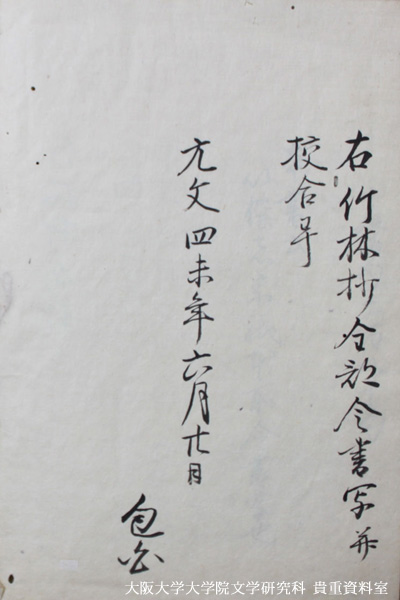 右竹林抄全部令書写并
校合畢
元文四未年六月廿日
包
大阪大学大学院文学研究科 貴重資料室